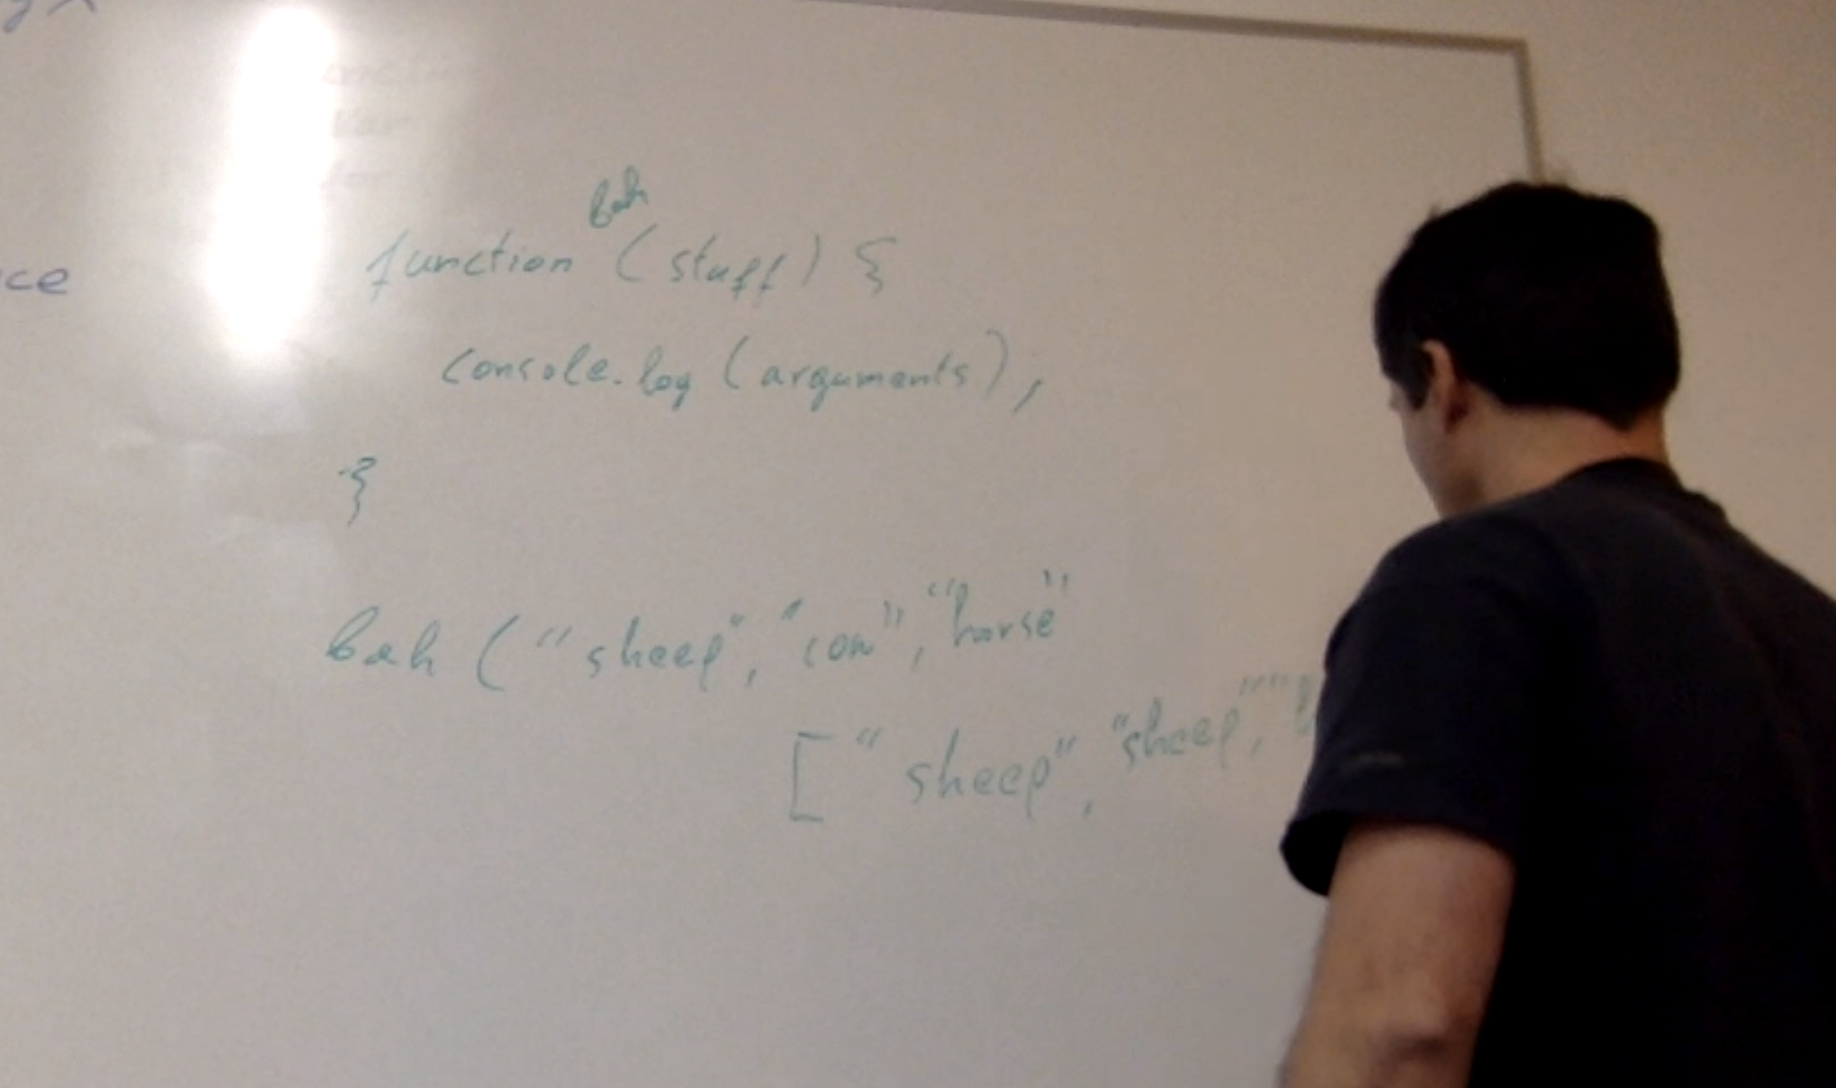 ce
bah
function (stuff) {
console.log (arguments);
}
bah ("sheep", "cow", "horse"
["sheep", "sheep", "